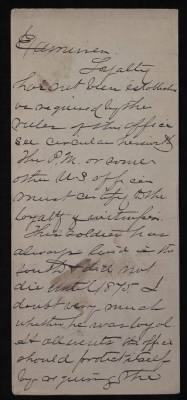 Examiner
Loyalty
has not been established
as required by the
rules of this office
see circular herewith
The P.M. or some
other U.S. officer
must certify to the
loyalty of witnesses.
This soldier has
always lived in the
South & did not
die until 1875 I
doubt very much
whether he was loyal
at all events the office
should protect itself
by requiring the